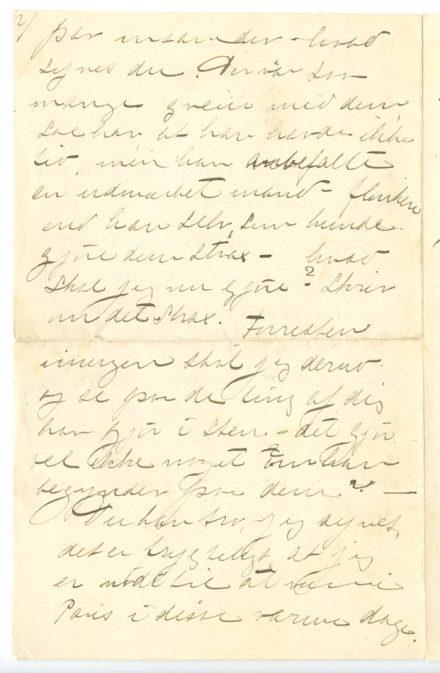 2)
par maaneder – hvad
synes du. Der var saa
mange greier med dem
saa han at han havde ikke
tid, men han anbefalte
en udmærket mand – flinkere
end han selv, som kunde
gjøre dem strax – hvad
skal jeg nu gjøre? Skriv
om det strax. Forresten
imorgen skal jeg derud
og se paa de ting af dig
han gjør i Sten – det gjør
vel ikke noget om han
begynder paa dem? –
Du kan tro, jeg synes,
det er hyggeligt, at jeg
er nødt til at være i
Paris i disse varme dage.